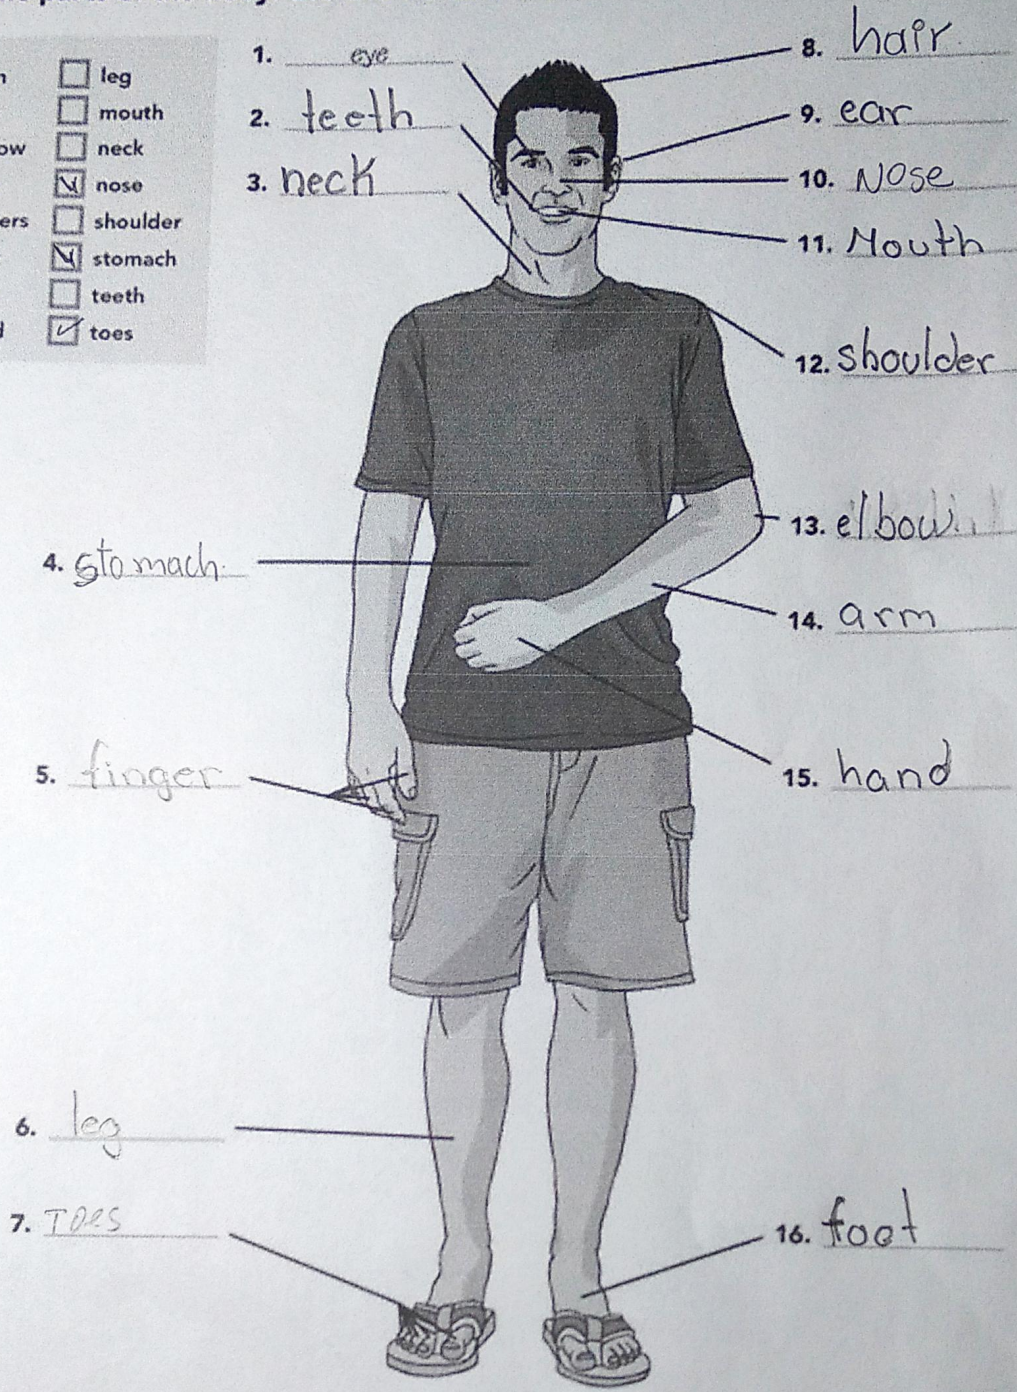 leg
mouth
ow neck
nose
ers shoulder
stomach
teeth
toes
1. eye
2. teeth
3. neck
4. stomach.
5. finger
6. leg
7. Toes
8. hair.
9. ear
10. Nose
11. Mouth
12. shoulder
13. elbow
14. arm
15. hand
16. foot